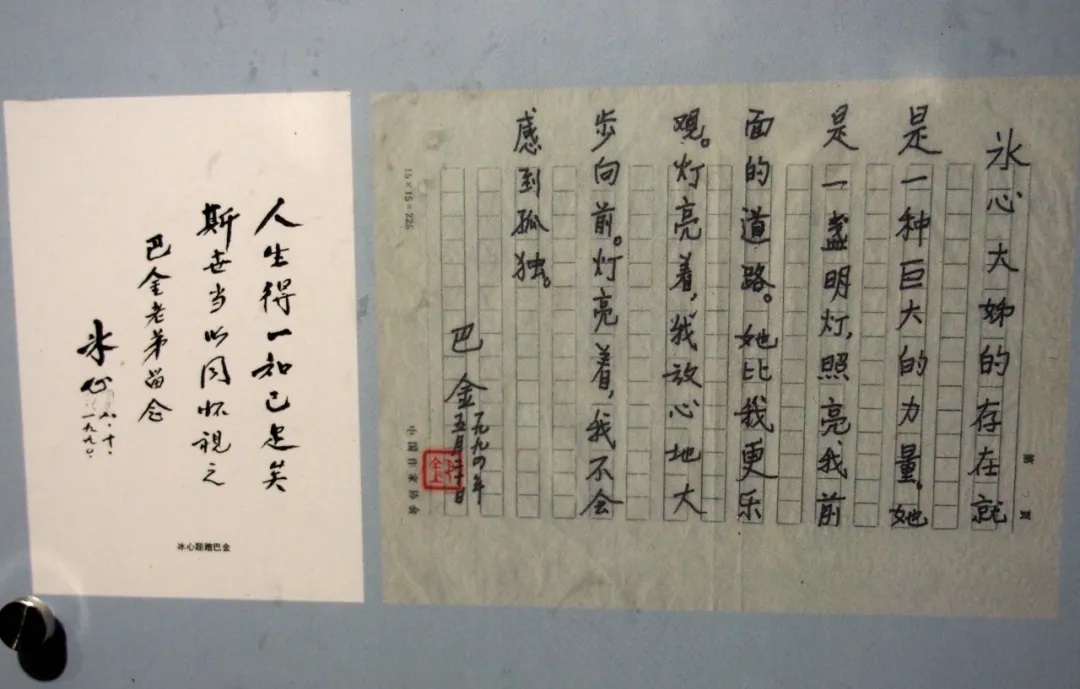 冰心大姊的存在就
是一种巨大的力量。她
是一盏明灯,照亮我前
面的道路。她比我更乐
观。灯亮着,我放心地大
步向前。灯亮着,我不会
感到孤独。
巴金
一九九四年
五月二十日
第 页
15×15=225
中国作家协会
人生得一知己足矣
斯世当以同怀视之
巴金老弟留念
冰心
六.十.
一九九〇.
冰心题赠巴金